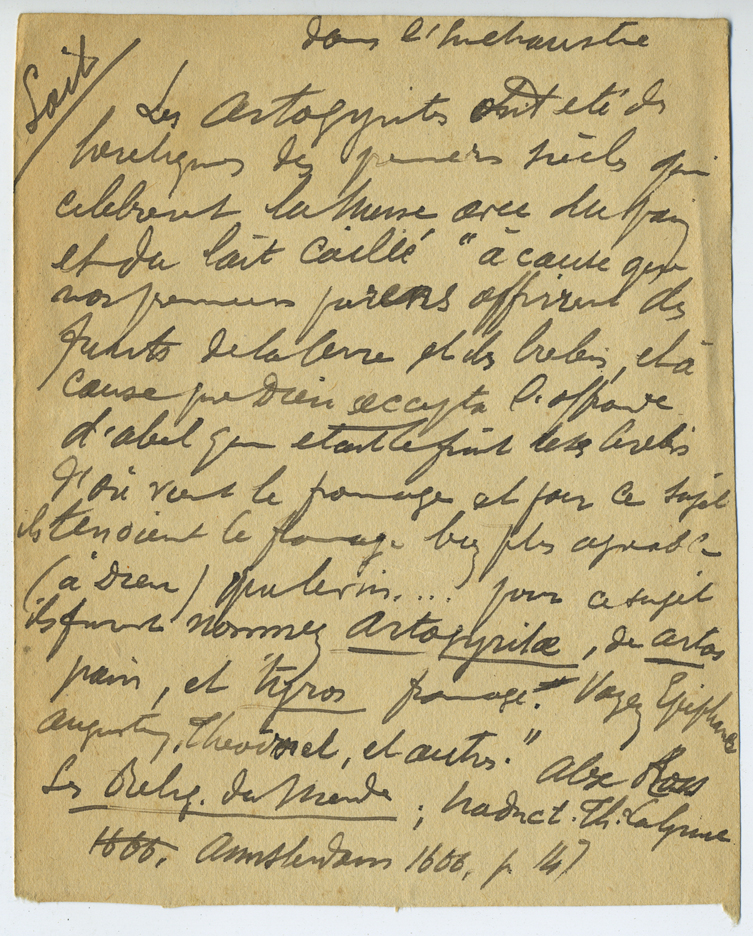 dans l'Eucharistie
Lait
Les Artogyrites ont été des
heretiques des premiers siècles qui
celebrerent la Messe avec du pain
et du lait caillé "à cause que
nos premiers parens offrirent des
fruits de la terre et des brebis, et à
cause que Dieu accepta l'offrande
d'abel qui etait le fruit de ses brebis
D'où vient le fromage et pour ce sujet
ils tenoient le fromage bien plus agreable
(à Dieu) que le vin.... pour ce sujet
ils furent nommez Artogyritae, de artos
pain, et tyros fromage. Voyez Epiphane
Augustin, Theodoret, et autres." Alex Ross
Les Relig. du Monde ; traduct. Th. La Grue
1666, Amsterdam 1666, p 147